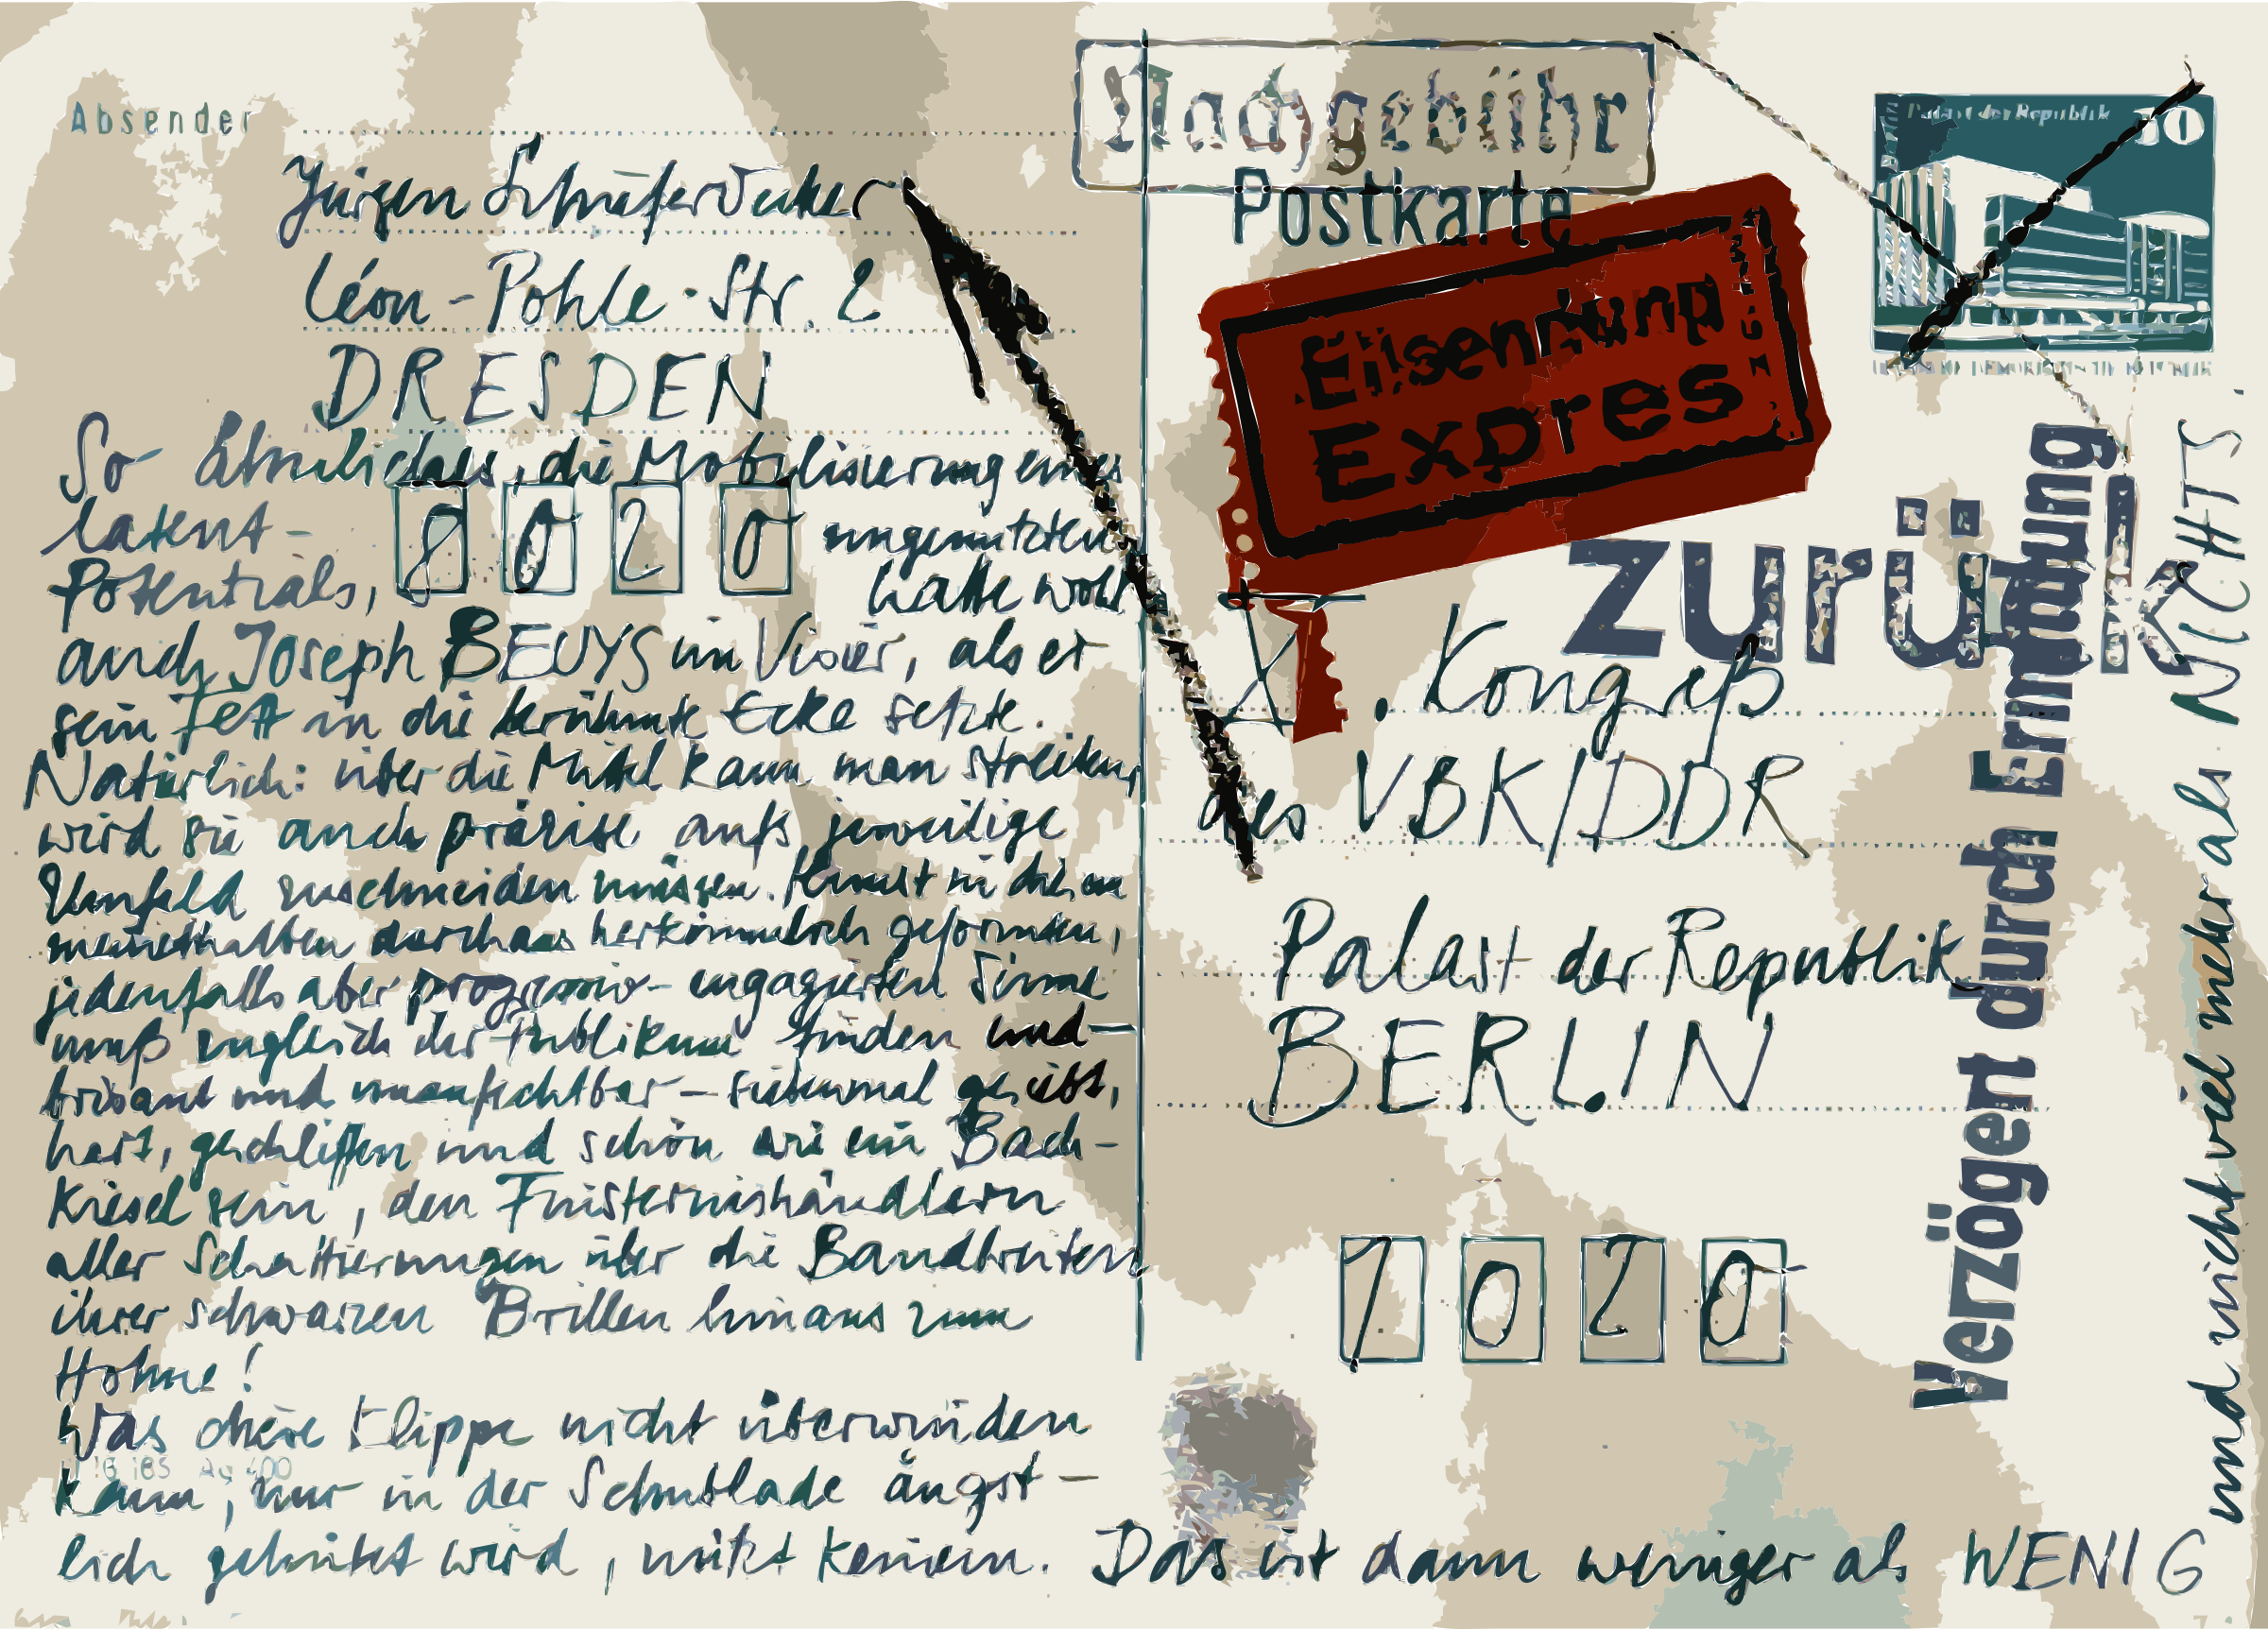 Absender
Jürgen Schieferdecker
Léon-Pohle-Str. 2
DRESDEN
8020
So ähnliches, die Mobilisierung eines
latent - ungenutzten
Potentials, hatte wohl
auch Joseph BEUYS im Visier, als er
sein Fett in die berühmte Ecke setzte.
Natürlich: über die Mittel kann man streiten,
wird sie auch präzise aufs jeweilige
Umfeld zuschneiden müssen. Kunst in diesem
meinethalben durchaus herkömmlich geformten,
jedenfalls aber progressiv-engagierten Sinne
muß zugleich ihr Publikum finden und -
brisant und unanfechtbar - siebenmal gesiebt,
hart, geschliffen und schön wie ein Bach-
kiesel sein, den Finsternishändlern
aller Schattierungen über die Bandbreiten
ihrer schwarzen Brillen hinaus zum
Hohne!
Was diese Klippe nicht überwinden
kann, nur in der Schublade ängst-
lich gehütet wird, nützt keinem. Das ist dann weniger als WENIG
und nicht viel mehr als NICHTS.
Nachgebühr
Postkarte
Eilsendung
Expres
Palast der Republik
zurück
Verzögert durch Ermittlung
X. Kongreß
des VBK/DDR
Palast der Republik
BERLIN
1020